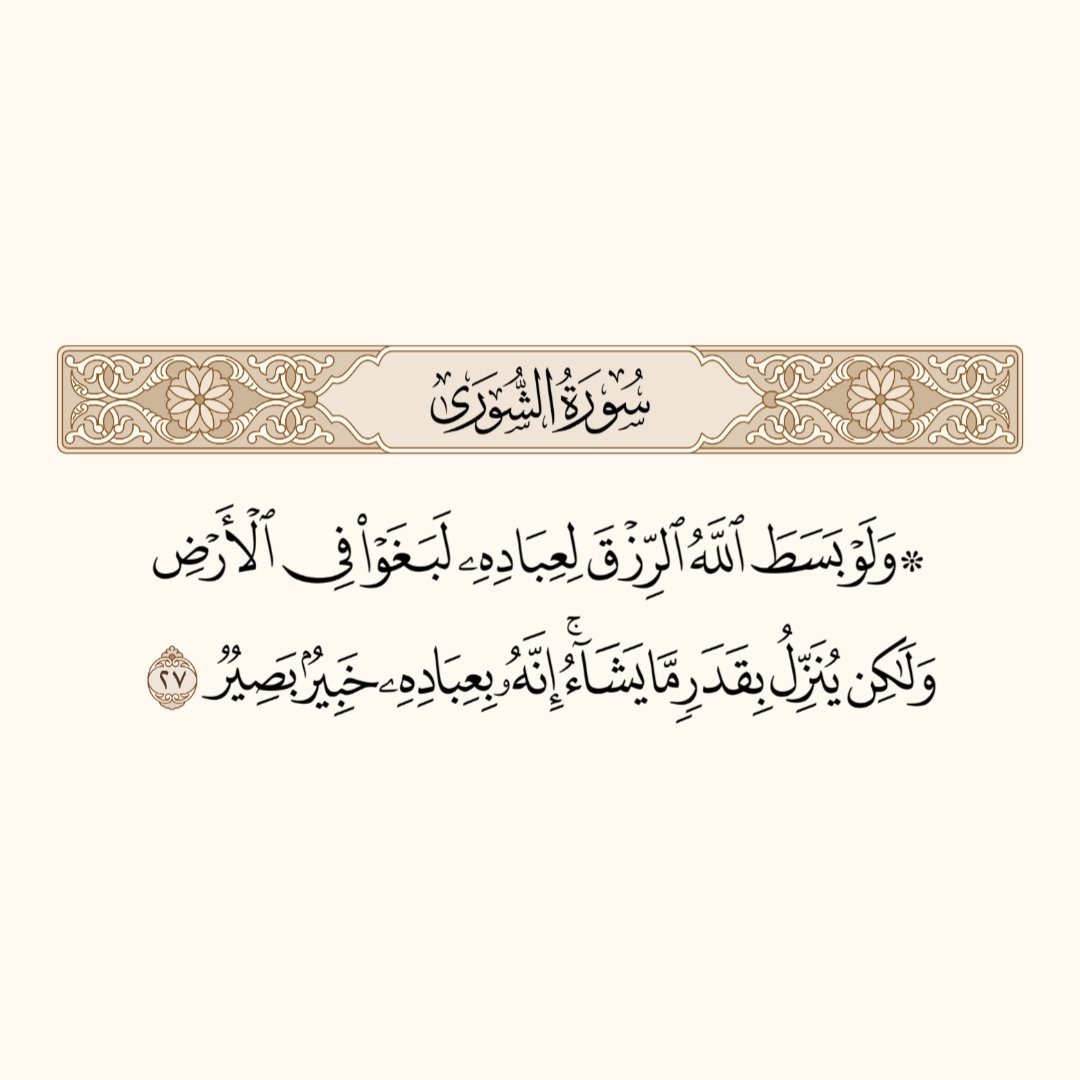 سُورَةُ الشُّورَىٰ
۞ وَلَوۡ بَسَطَ ٱللَّهُ ٱلرِّزۡقَ لِعِبَادِهِۦ لَبَغَوۡاْ فِي ٱلۡأَرۡضِ
وَلَٰكِن يُنَزِّلُ بِقَدَرٖ مَّا يَشَآءُۚ إِنَّهُۥ بِعِبَادِهِۦ خَبِيرُۢ بَصِيرٞ ٢٧